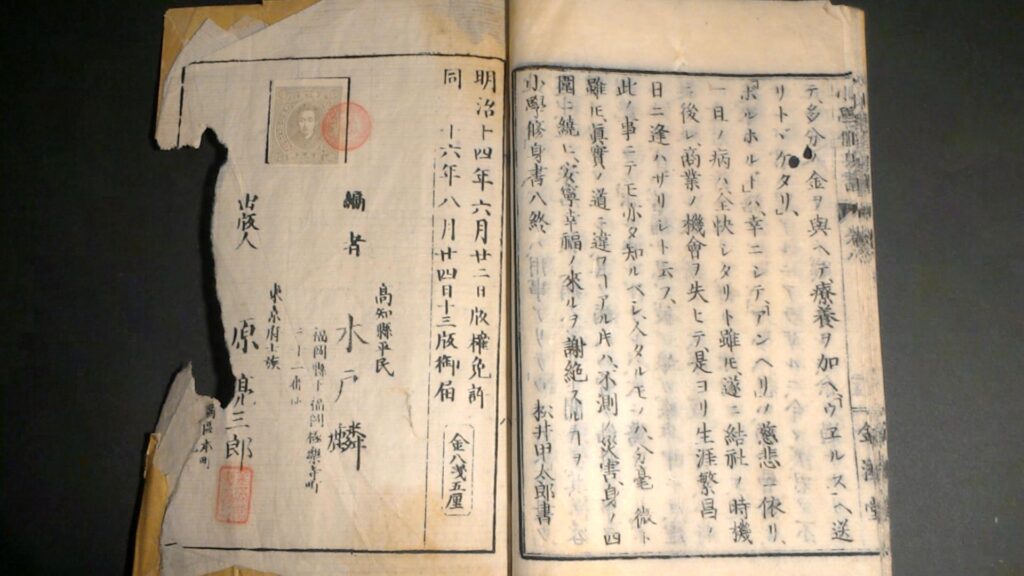 テ、多分ノ金ヲ與ヘテ療養ヲ加ヘ、ウエルスヘ送
リトヾケタリ、
「ボルホルド」ハ、幸ニシテ、アンヘリノ慈悲ニ依リ、
一日ノ病ハ全快シタリト雖モ遂ニ結社ノ時機
ニ後レ、高業ノ機會ヲ失ヒテ、是ヨリ生涯繁昌ノ
日ニ逢ハザリシト云フ、
此ノ事ニテモ亦タ知ルベシ、人タルモノハ、分毫ノ微ト
雖モ、眞實ノ道ニ違フコアル片ハ、不測ノ災害、身ノ四
圍ニ繞ヒ、安寧幸福ノ來ルヲ謝絶スルコヲ
小學修身書八終
松井甲太郎書
金港堂
明治十四年六月廿二日版權免許
同 十六年八月廿四日十三版御届
金八淺五厘
高知縣平民
編者 水戸
福岡縣下福岡
東京府士族
出版人 原亮三郎
本町